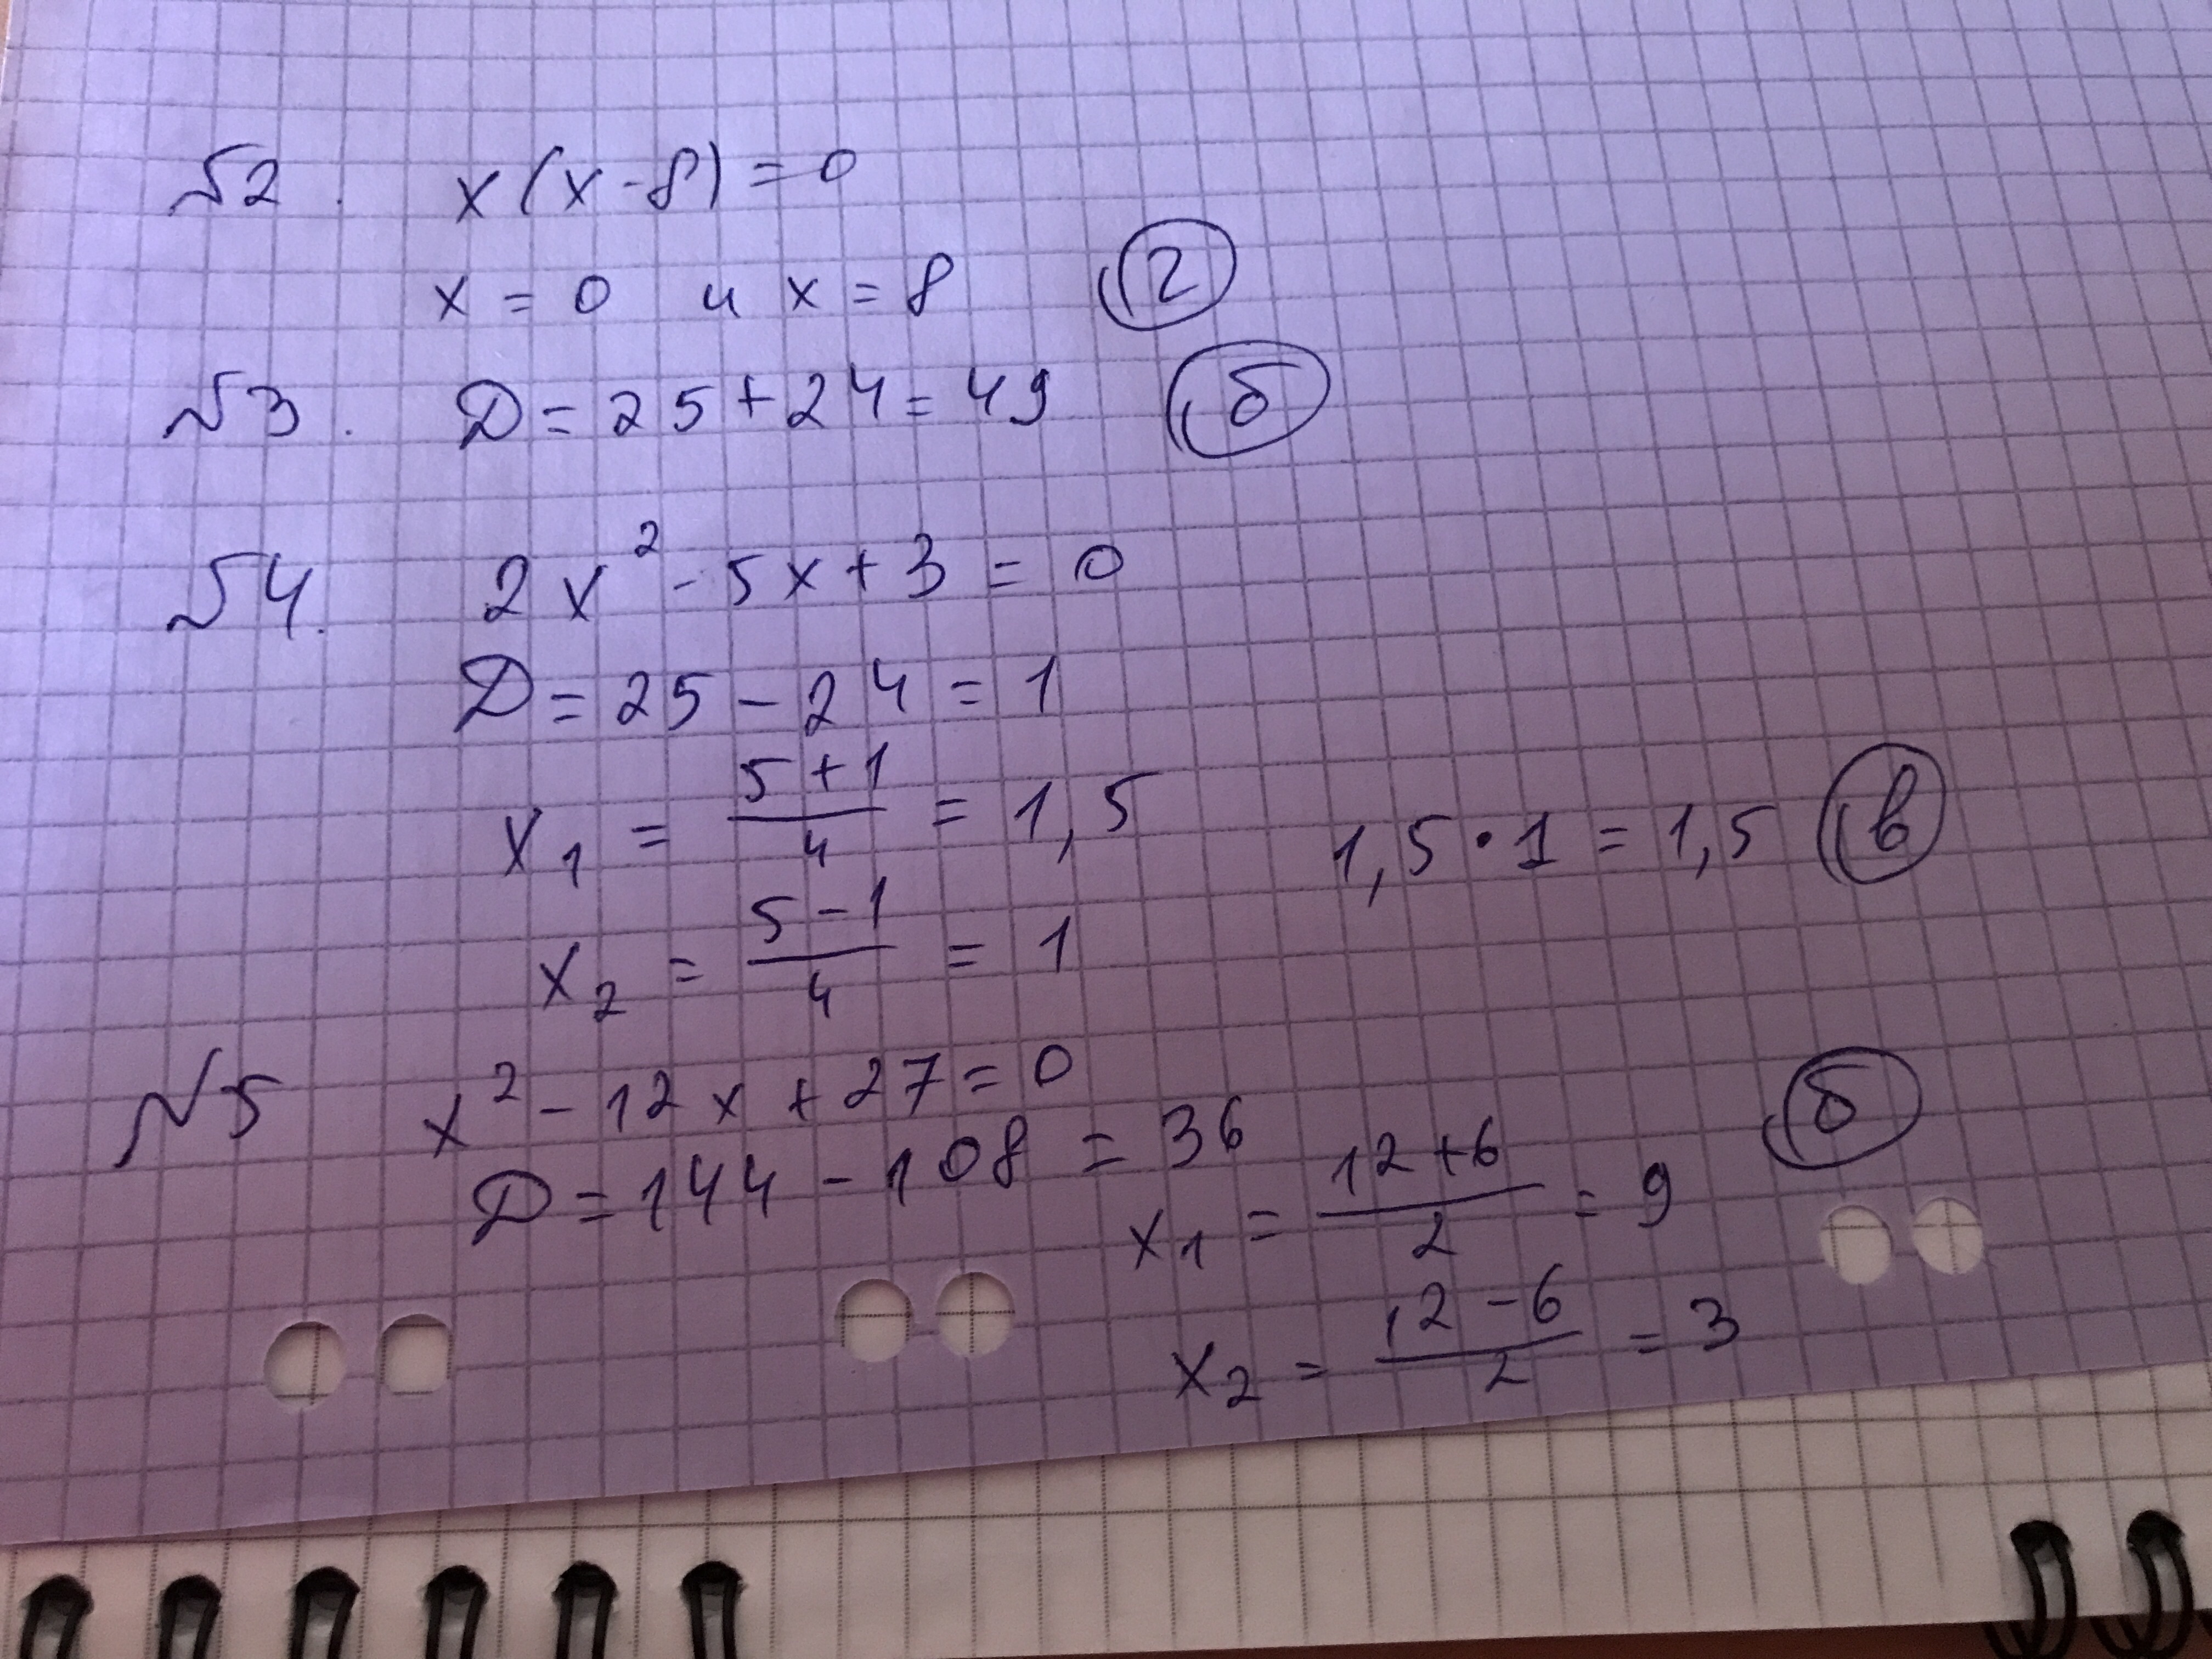 №2. x(x-8)=0
x=0 и x=8 г
№3. D=25+24=49 б
№4. 2x²-5x+3=0
D=25-24=1
x₁ = (5+1)/4 = 1,5 1,5·1=1,5 в
x₂ = (5-1)/4 = 1
№5 x²-12x+27=0 б
D=144-108=36
x₁ = (12+6)/2 = 9
x₂ = (12-6)/2 = 3